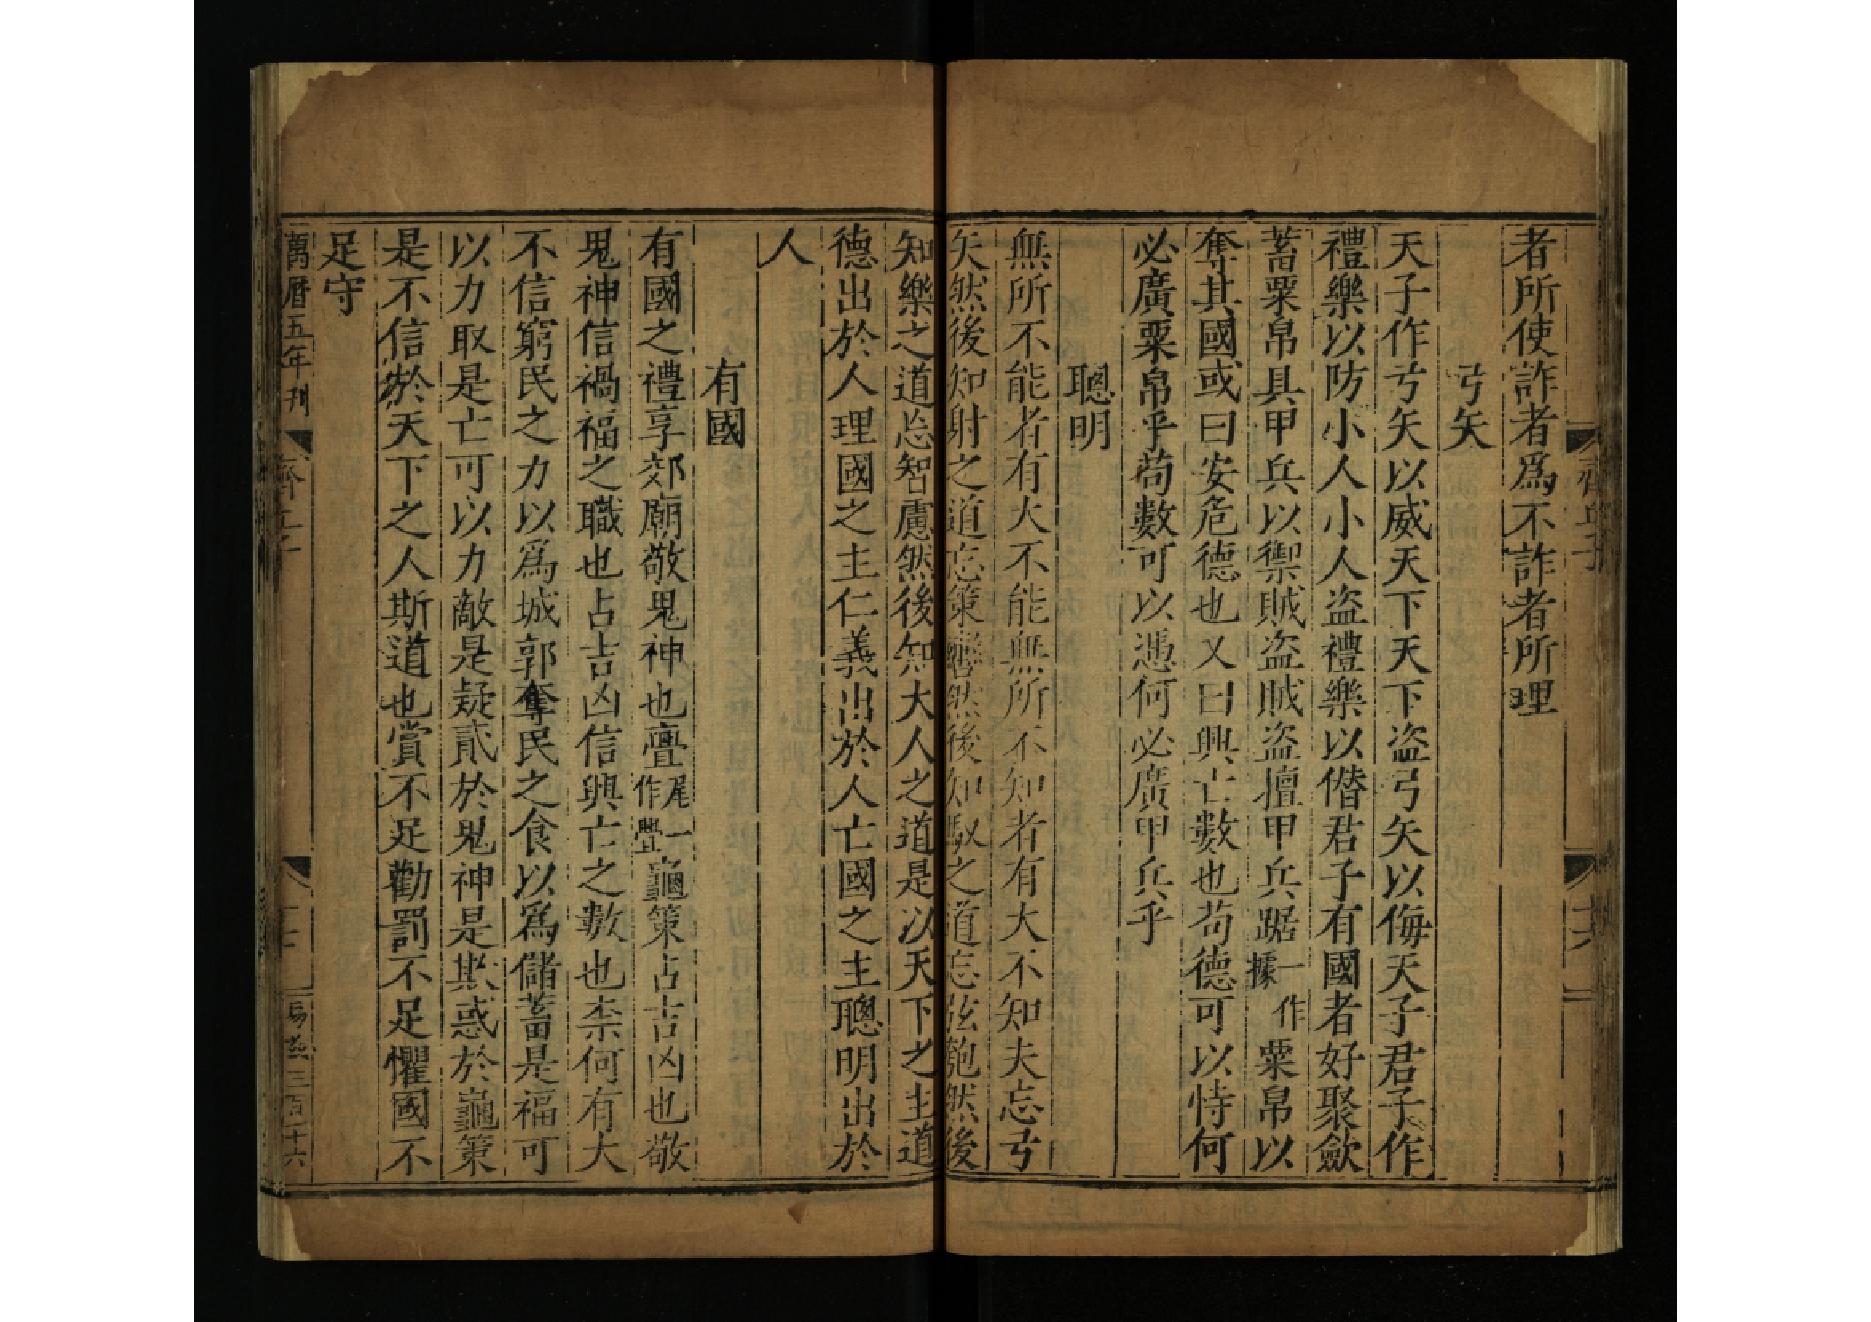 齊丘子
者所使詐者爲不詐者所理
弓矢
天子作弓矢以威天下天下盗弓矢以侮天子君子作
禮樂以防小人小人盗禮樂以僭君子有國者好聚歛
蓄粟帛具甲兵以禦賊盗賊盗擅甲兵踞一作據粟帛以
奪其國或曰安危德也又曰興亡數也苟德可以恃何
必廣粟帛乎苟數可以憑何必廣甲兵乎
聰明
無所不能者有大不能無所不知者有大不知夫忘弓
矢然後知射之道忘策轡然後知馭之道忘弦匏然後
知樂之道忘智慮然後知大人之道是以天下之主道
德出於人理國之主仁義出於人亡國之主聰明出於
人
有國
有國之禮享郊廟敬鬼神也亹尾一作舋龜策占吉凶也敬
鬼神信禍福之職也占吉凶信興亡之數也柰何有大
不信窮民之力以爲城郭奪民之食以爲儲蓄是福可
以力取是亡可以力敵是疑貳於鬼神是欺惑於龜策
是不信於天下之人斯道也賞不足勸罰不足懼國不
足守
萬曆五年刊
三百十六